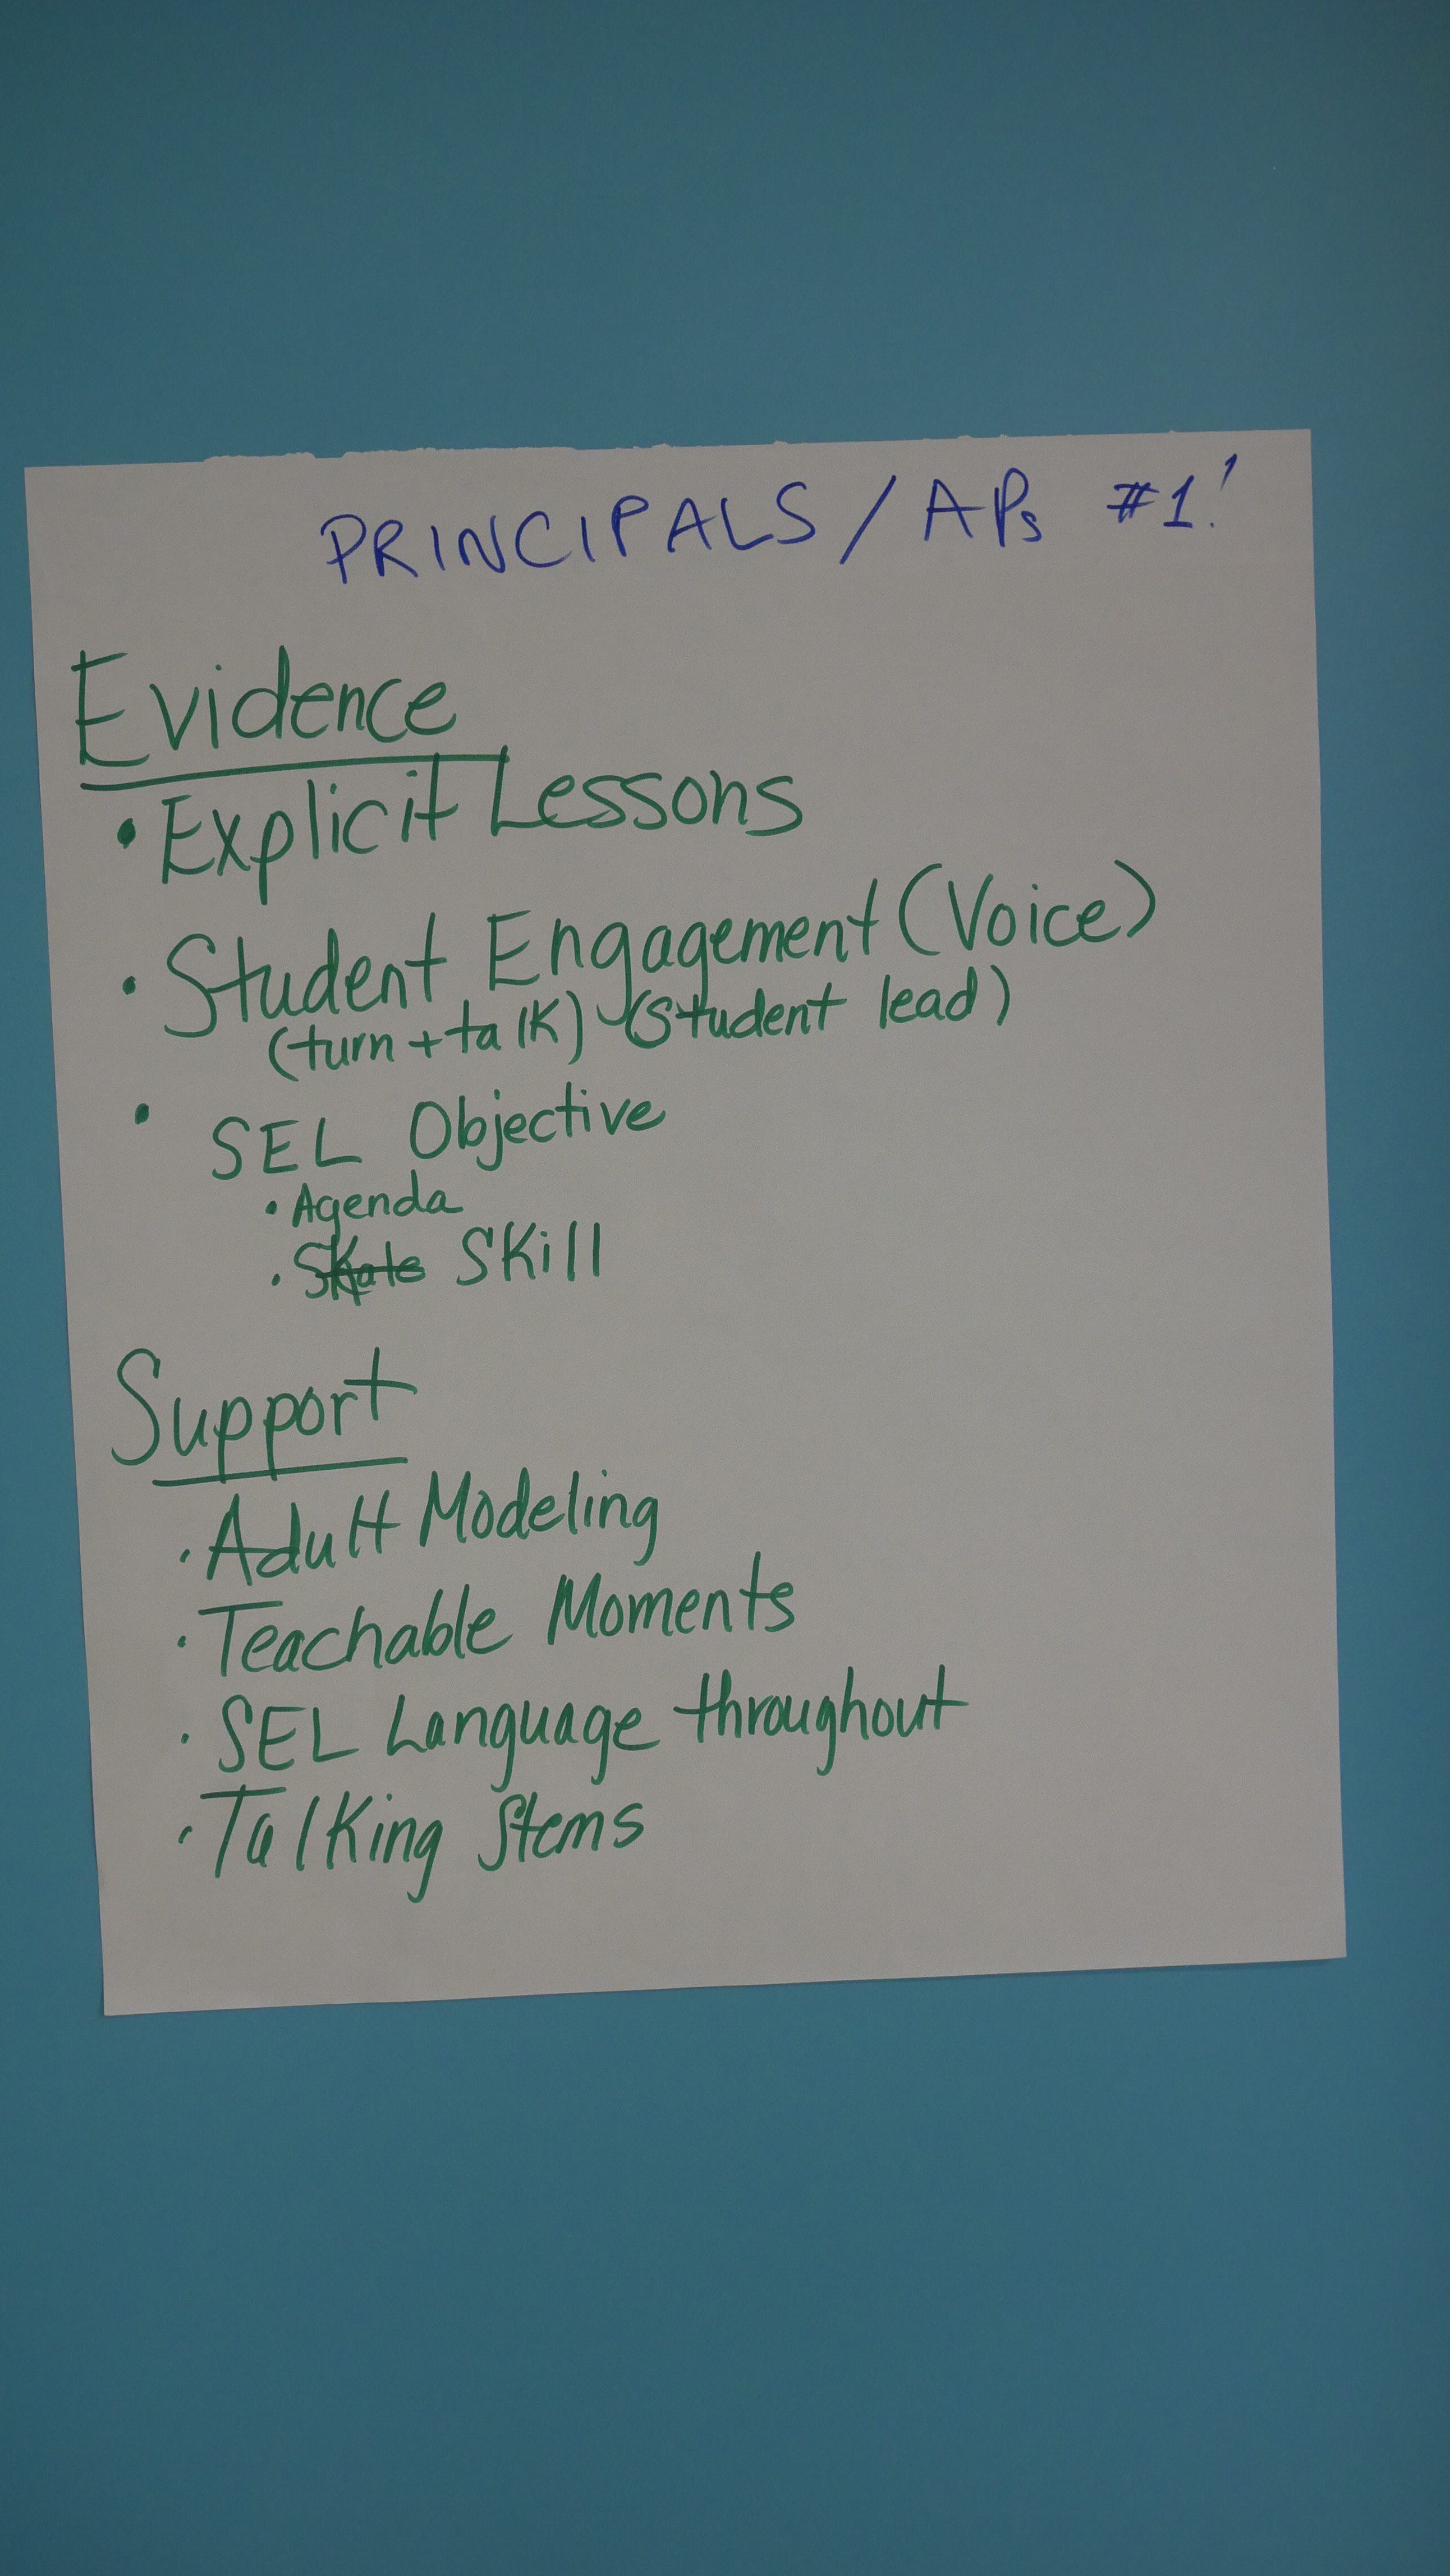 PRINCIPALS / APs #1!
Evidence
• Explicit Lessons
• Student Engagement (Voice)
(turn + talk) (Student lead)
• SEL Objective
• Agenda
• Skill
Support
• Adult Modeling
• Teachable Moments
• SEL Language throughout
• Talking Stems